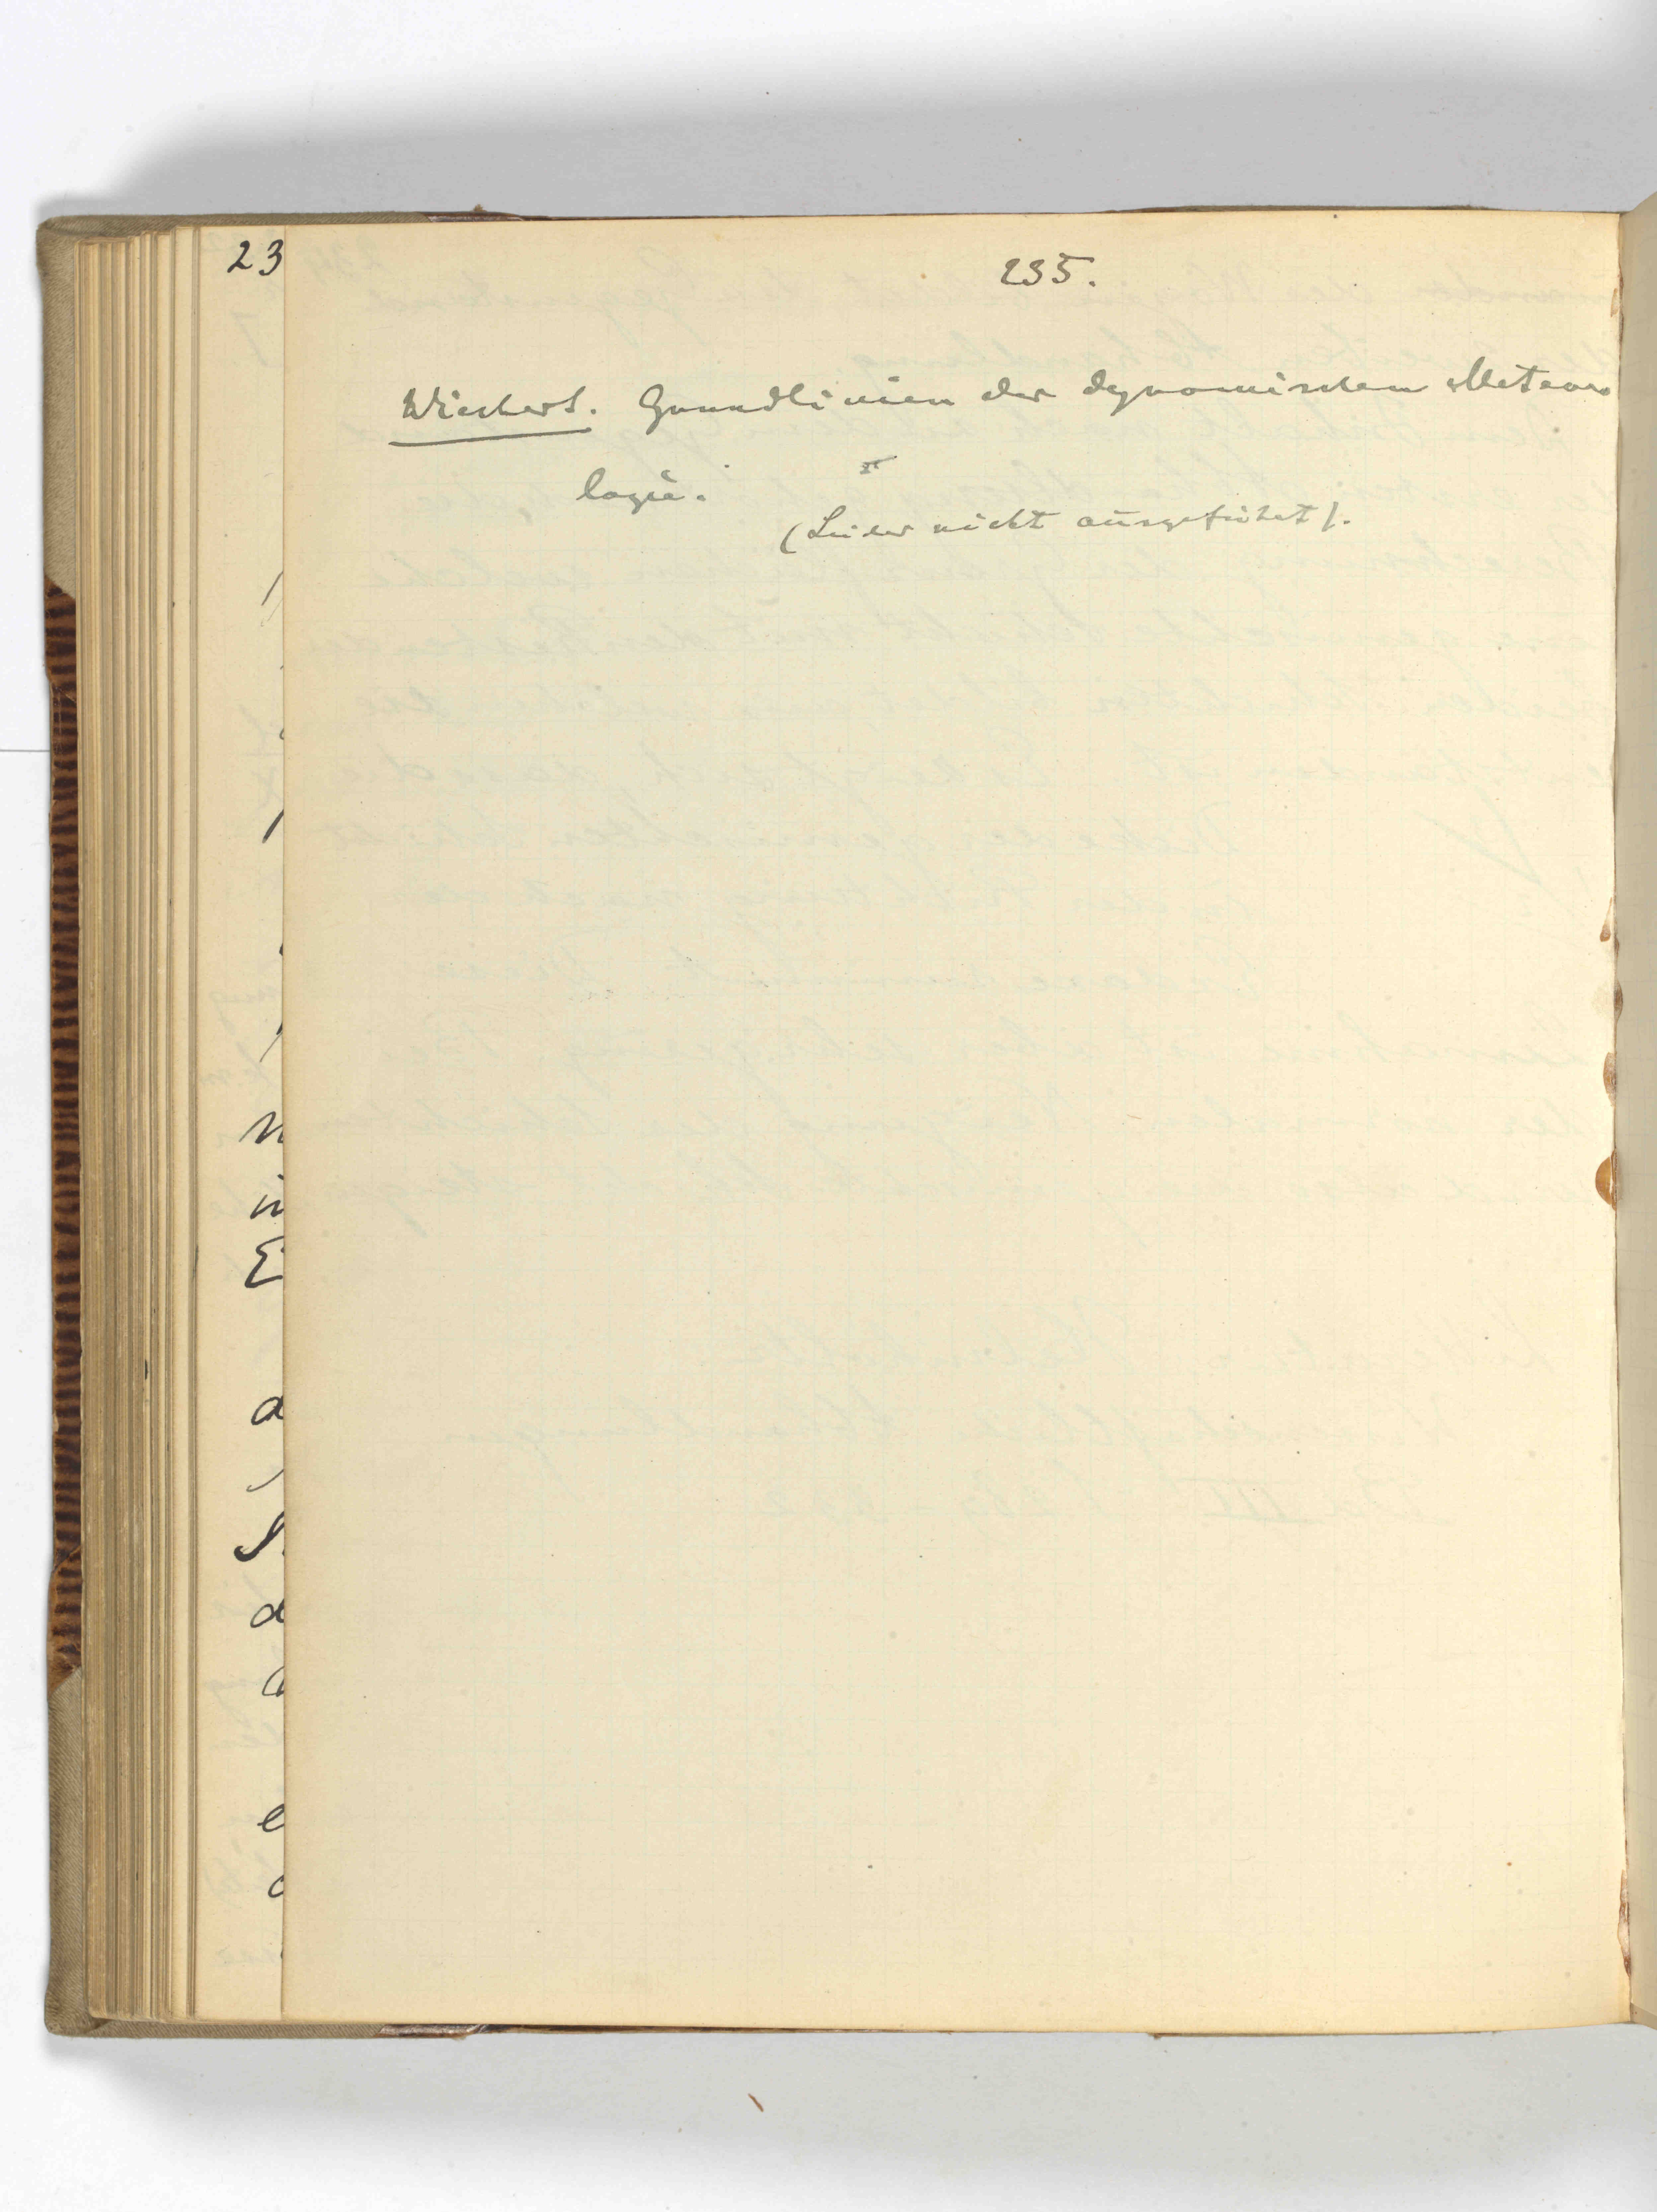 235.
Wiechert. Grundlinien der dynamischen Meteoro
logie.
(Leider nicht ausgeführt).
23